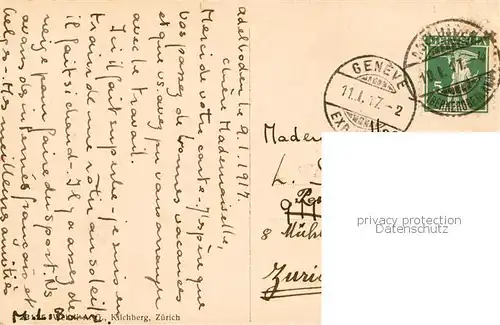 Adelboden le 9.1.1917.
Chère Mademoiselle,
Merci de votre carte. J'espère que
vous passez de bonnes vacances
et que vs. avez pu vs arranger
avec le travail.
Ici il fait superbe - je suis en
train de me rôtir au soleil
il fait si chaud. Il y a assez de
neige pour faire du sport. Ns
avons de internés français et
belges. Mes meilleures amitiés
M.L. Baur.
GENÈVE
11.I.17.-2
EXP
5
Made
L.
8 Mühl
Zuri
privacy protection
oldthing.de
Kilchberg, Zürich